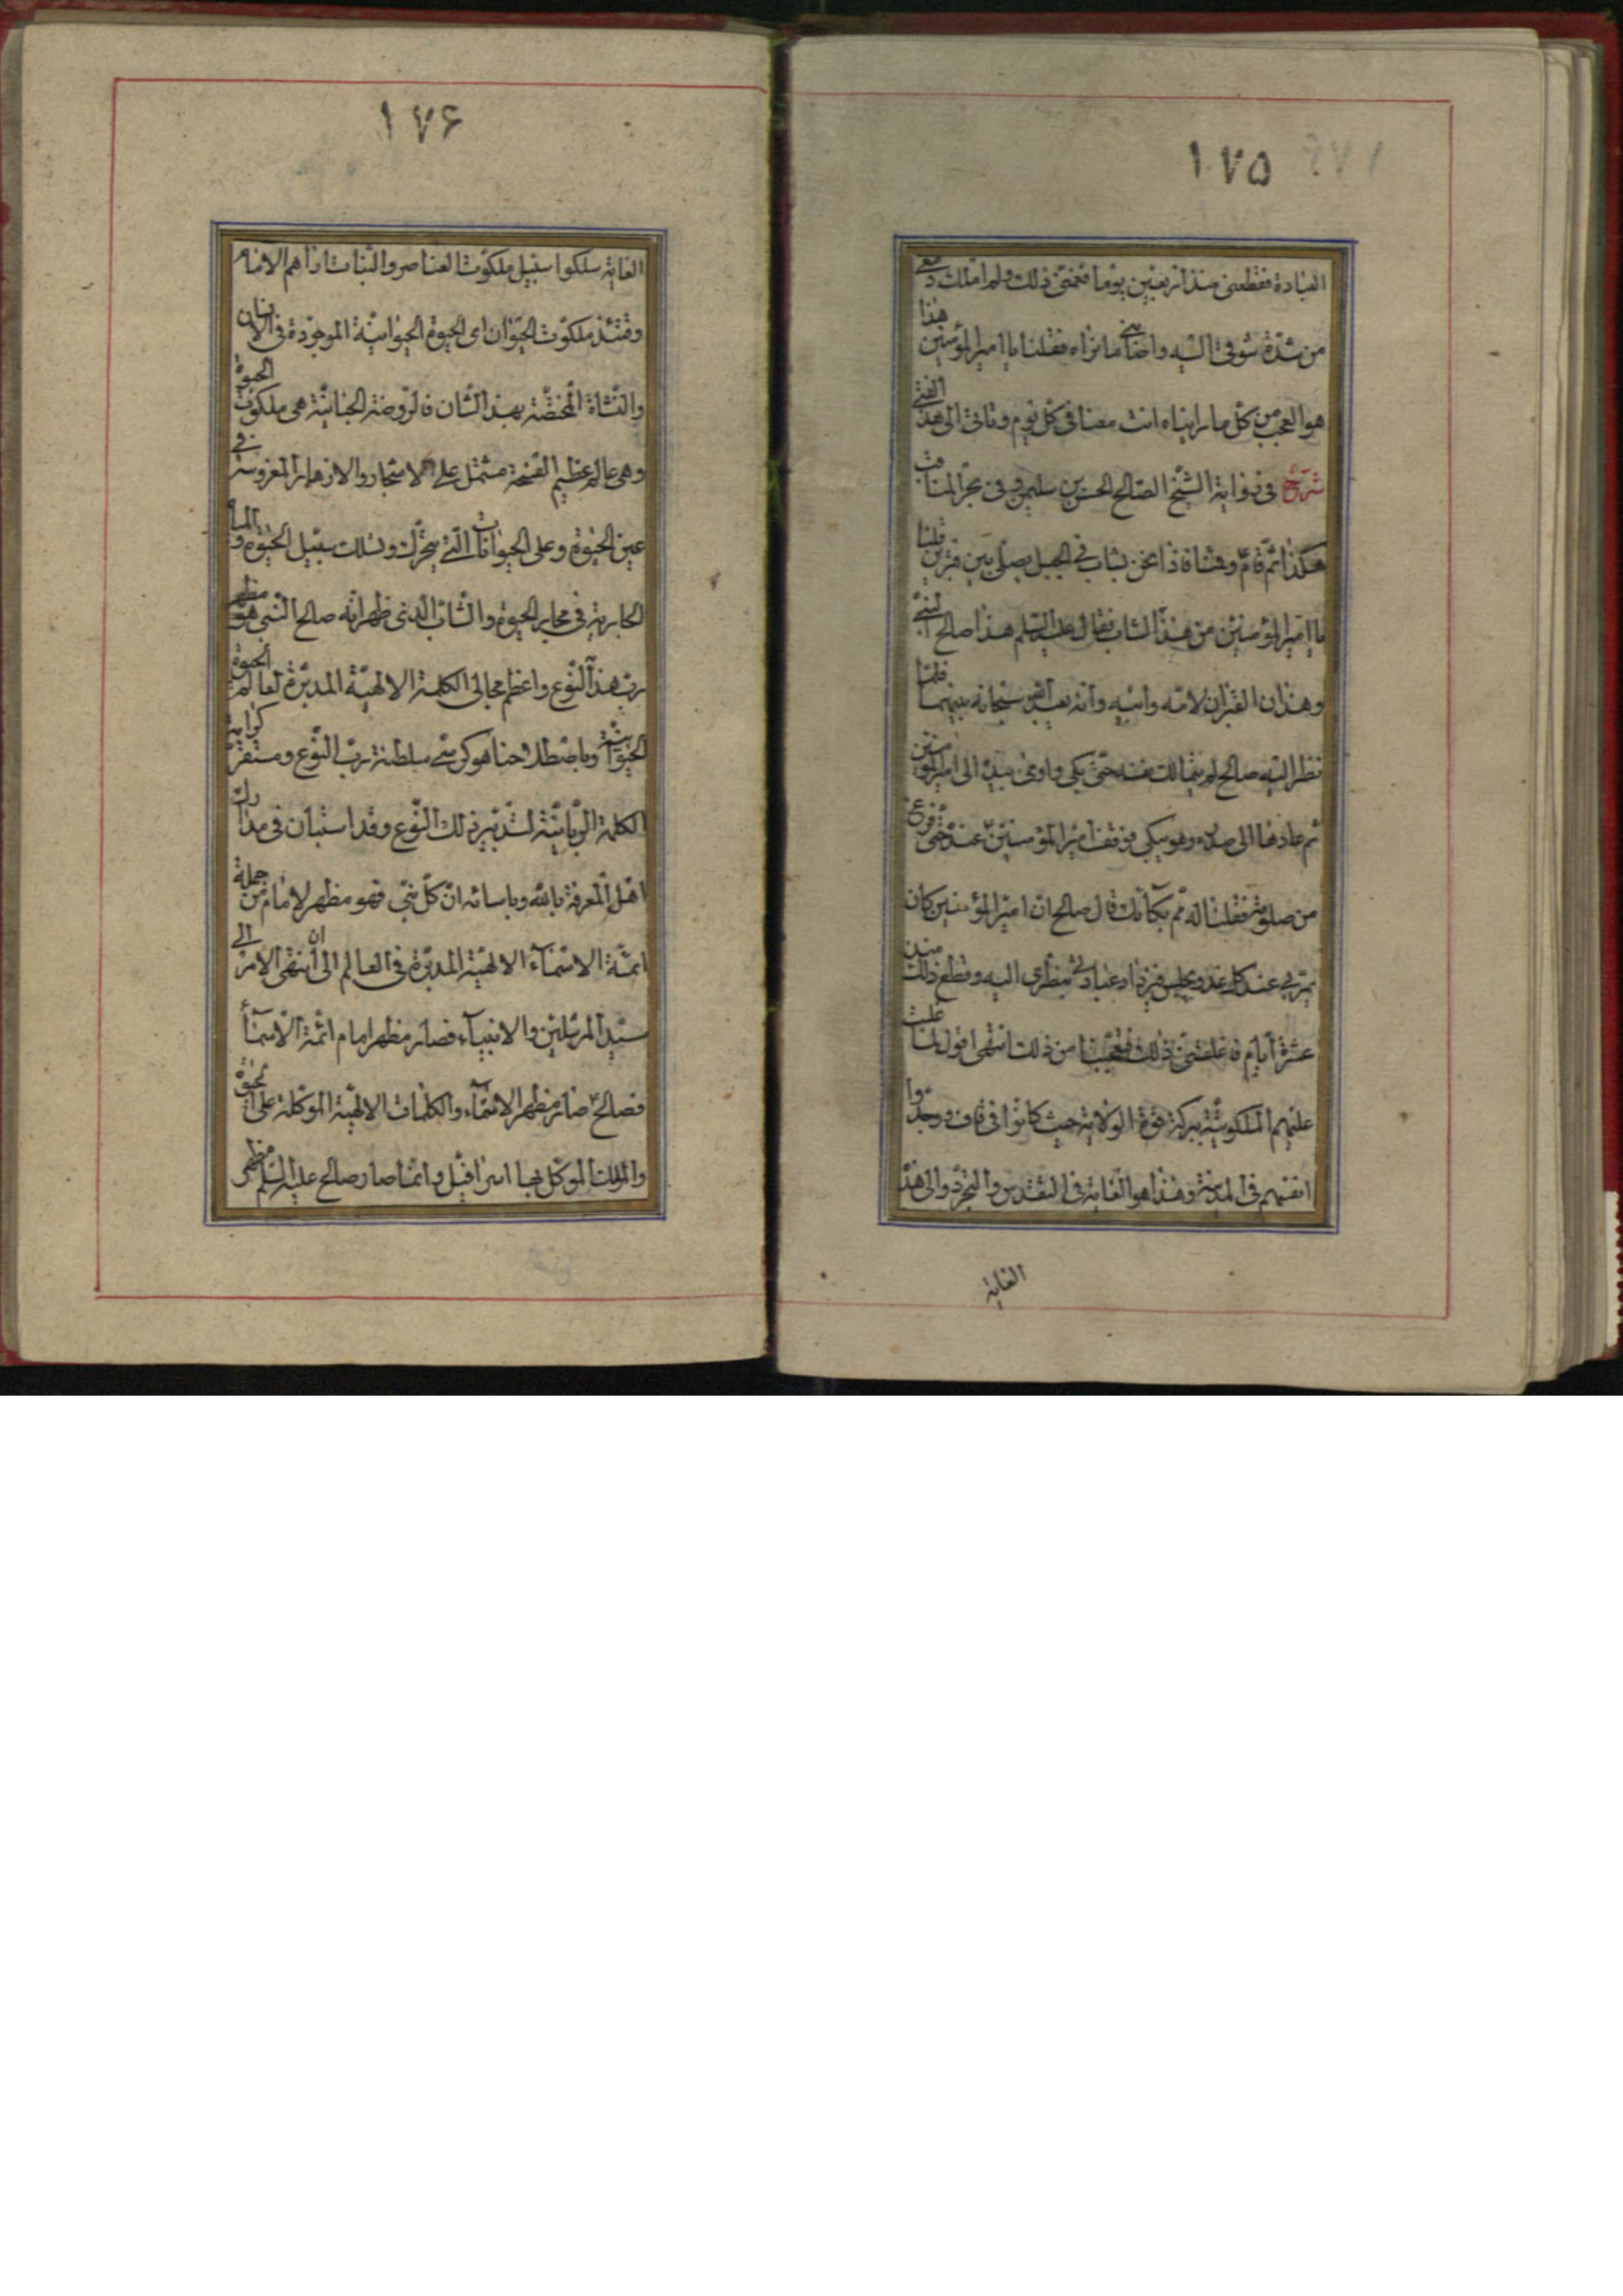 ١٧٥
العبادة فقطعنى منذ اربعين يوما فغمنى ذلك ولم املك دمعى
من شدة شوقى اليه واضانى ما تراه فقلنا يا امير المؤمنين هذا
هو العجب من كل ما رايناه انت معنا فى كل يوم وتاتى الى هذا الفتى
شرح فى رواية الشيخ الصالح الحسن بن سليمن وفى بحر المناقب
هكذا ثم قام ومشا فاذا نحن بشاب فى الجبل يصلى بين قبرين قلنا
يا امير المؤمنين من هذا الشاب فقال عليه السلم هذا صالح النبى
وهذان القبران لامه وابيه وانه يعبد الله سبحانه بينهما فلما
نظر اليه صالح لم يتمالك نفسه حتى بكى واومى بيده الى امير المؤمنين
ثم عادها الى صدره وهو يبكى فوقف امير المؤمنين عنده حتى فرغ
من صلوته فقلنا له مم بكاؤك قال صالح ان امير المؤمنين كان
يمر بى عند كل غدوة يجلس فيزداد عبادتى بنظرى اليه وقطع ذلك منذ
عشرة ايام فاغلقنى ذلك فتعجبنا من ذلك انتهى اقول لما غلبت
عليهم الملكوتية ببركة قوة الولاية حيث كانوا فى قاف ووجدوا
انفسهم فى المدينة وهذا هو الغاية فى التقدس والتجرد والى هذا
الغاية
١٧۶
الغاية سلكوا سبيل ملكوت العناصر والنبات اراهم الامام
وقتئذ ملكوت الحيوان اى الحيوة الحيوانية الموجودة فى الانسان
والنشاة المختصة بهذا الشان فالروضة الجنانية هى ملكوت الحيوة
وهى عالم عظيم الفسحة مشتمل على الاشجار والازهار المغروسة فى
عين الحيوة وعلى الحيوانات التى يتحرك وتسلك سبيل الحيوة والمياه
الجارية فى مجارى الحيوة والشاب الذى ظهر انه صالح النبى هو مظهر
رب هذا النوع واعظم مجالى الكلمة الالهية المدبرة لعالم الحيوة
الحيوانية وباصطلاحنا هو كرسى سلطنة رب النوع ومستقر كرامة
الكلمة الربانية لتدبير ذلك النوع وقد استبان فى مدارك
اهل المعرفة بالله وباسمائه ان كل نبى فهو مظهر لامام من جملة
ائمة الاسماء الالهية المدبرة فى العالم الى ان انتهى الامر الى
سيد المرسلين والانبياء فصار مظهر امام ائمة الاسماء
فصالح صار مظهر الاسماء والكلمات الالهية الموكلة على الحيوة
والملك الموكل بها اسرافيل وانما صار صالح عليه السلم مظهر